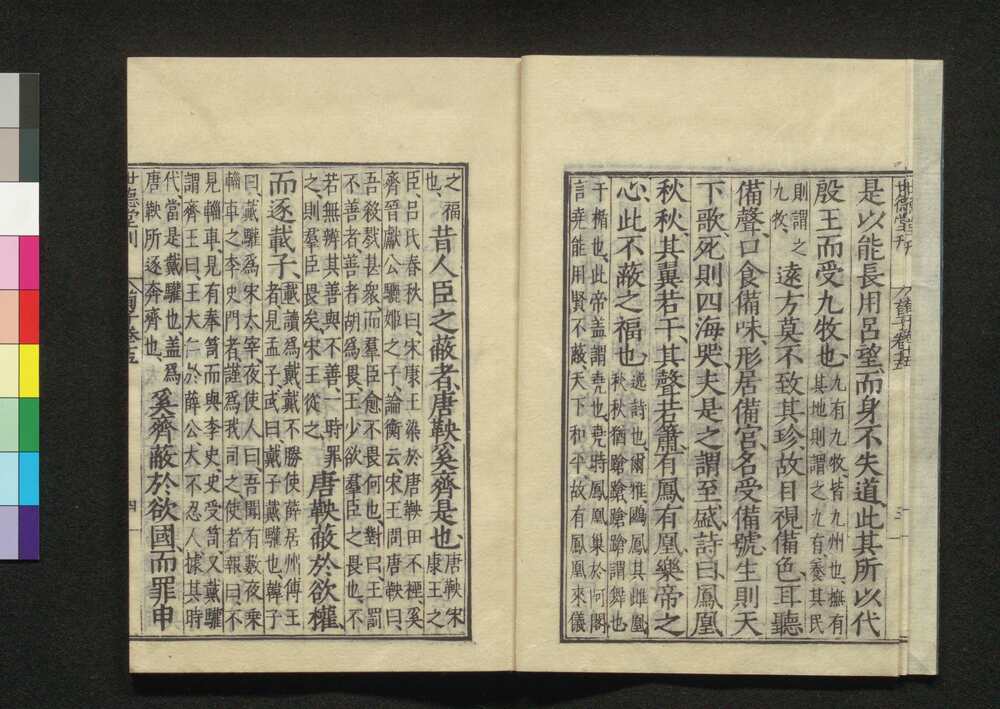 是以能長用呂望、而身不失道、此其所以代
殷王而受九牧也、九有九牧、皆九州也、撫有
其地則謂之九有、養其民
則謂之
九牧、
遠方莫不致其珍、故目視備色、耳聽
備聲、口食備味、形居備宮、名受備號、生則天
下歌、死則四海哭、夫是之謂至盛、詩曰、鳳凰
秋秋、其翼若干、其聲若簫、有鳳有凰、樂帝之
心、此不蔽之福也、逸詩也、爾雅、鶠鳳其雌凰
秋秋猶蹌蹌、蹌蹌謂舞也
干楯也、此帝盖謂堯也、堯時鳳凰巢於阿閣
言堯能用賢不蔽、天下和平、故有鳳凰來儀
之福
也、
昔人臣之蔽者、唐鞅奚齊是也、唐鞅宋
康王之
臣、呂氏春秋曰、宋康王染於唐鞅田不禋、奚
齊晉獻公驪姬之子、論衡云、宋王問唐鞅曰、
吾殺戮甚衆、而羣臣愈不畏何也、對曰、王罰
不善者、善者胡爲畏、王少欲羣臣之畏也、不
若無辨其善與不善、一時罪
之、則羣臣畏矣、宋王從之、
唐鞅蔽於欲權、
而逐載子、載讀爲戴、戴不勝使薛居州傅王
者、見孟子、或曰、戴子戴驩也、韓子
曰、戴驩爲宋太宰、夜使人曰、吾聞有數夜乗
轀車之李史門者、謹爲我司之、使者報曰、不
見轀車、見有奉笥而與李史、史受笥、又戴驩
謂齊王曰、王大仁於薛公、大不忍人、據其時
代、當是戴驩也、盖爲
唐鞅所逐奔齊也、
奚齊蔽於欲國、而罪申
世德堂刊
四